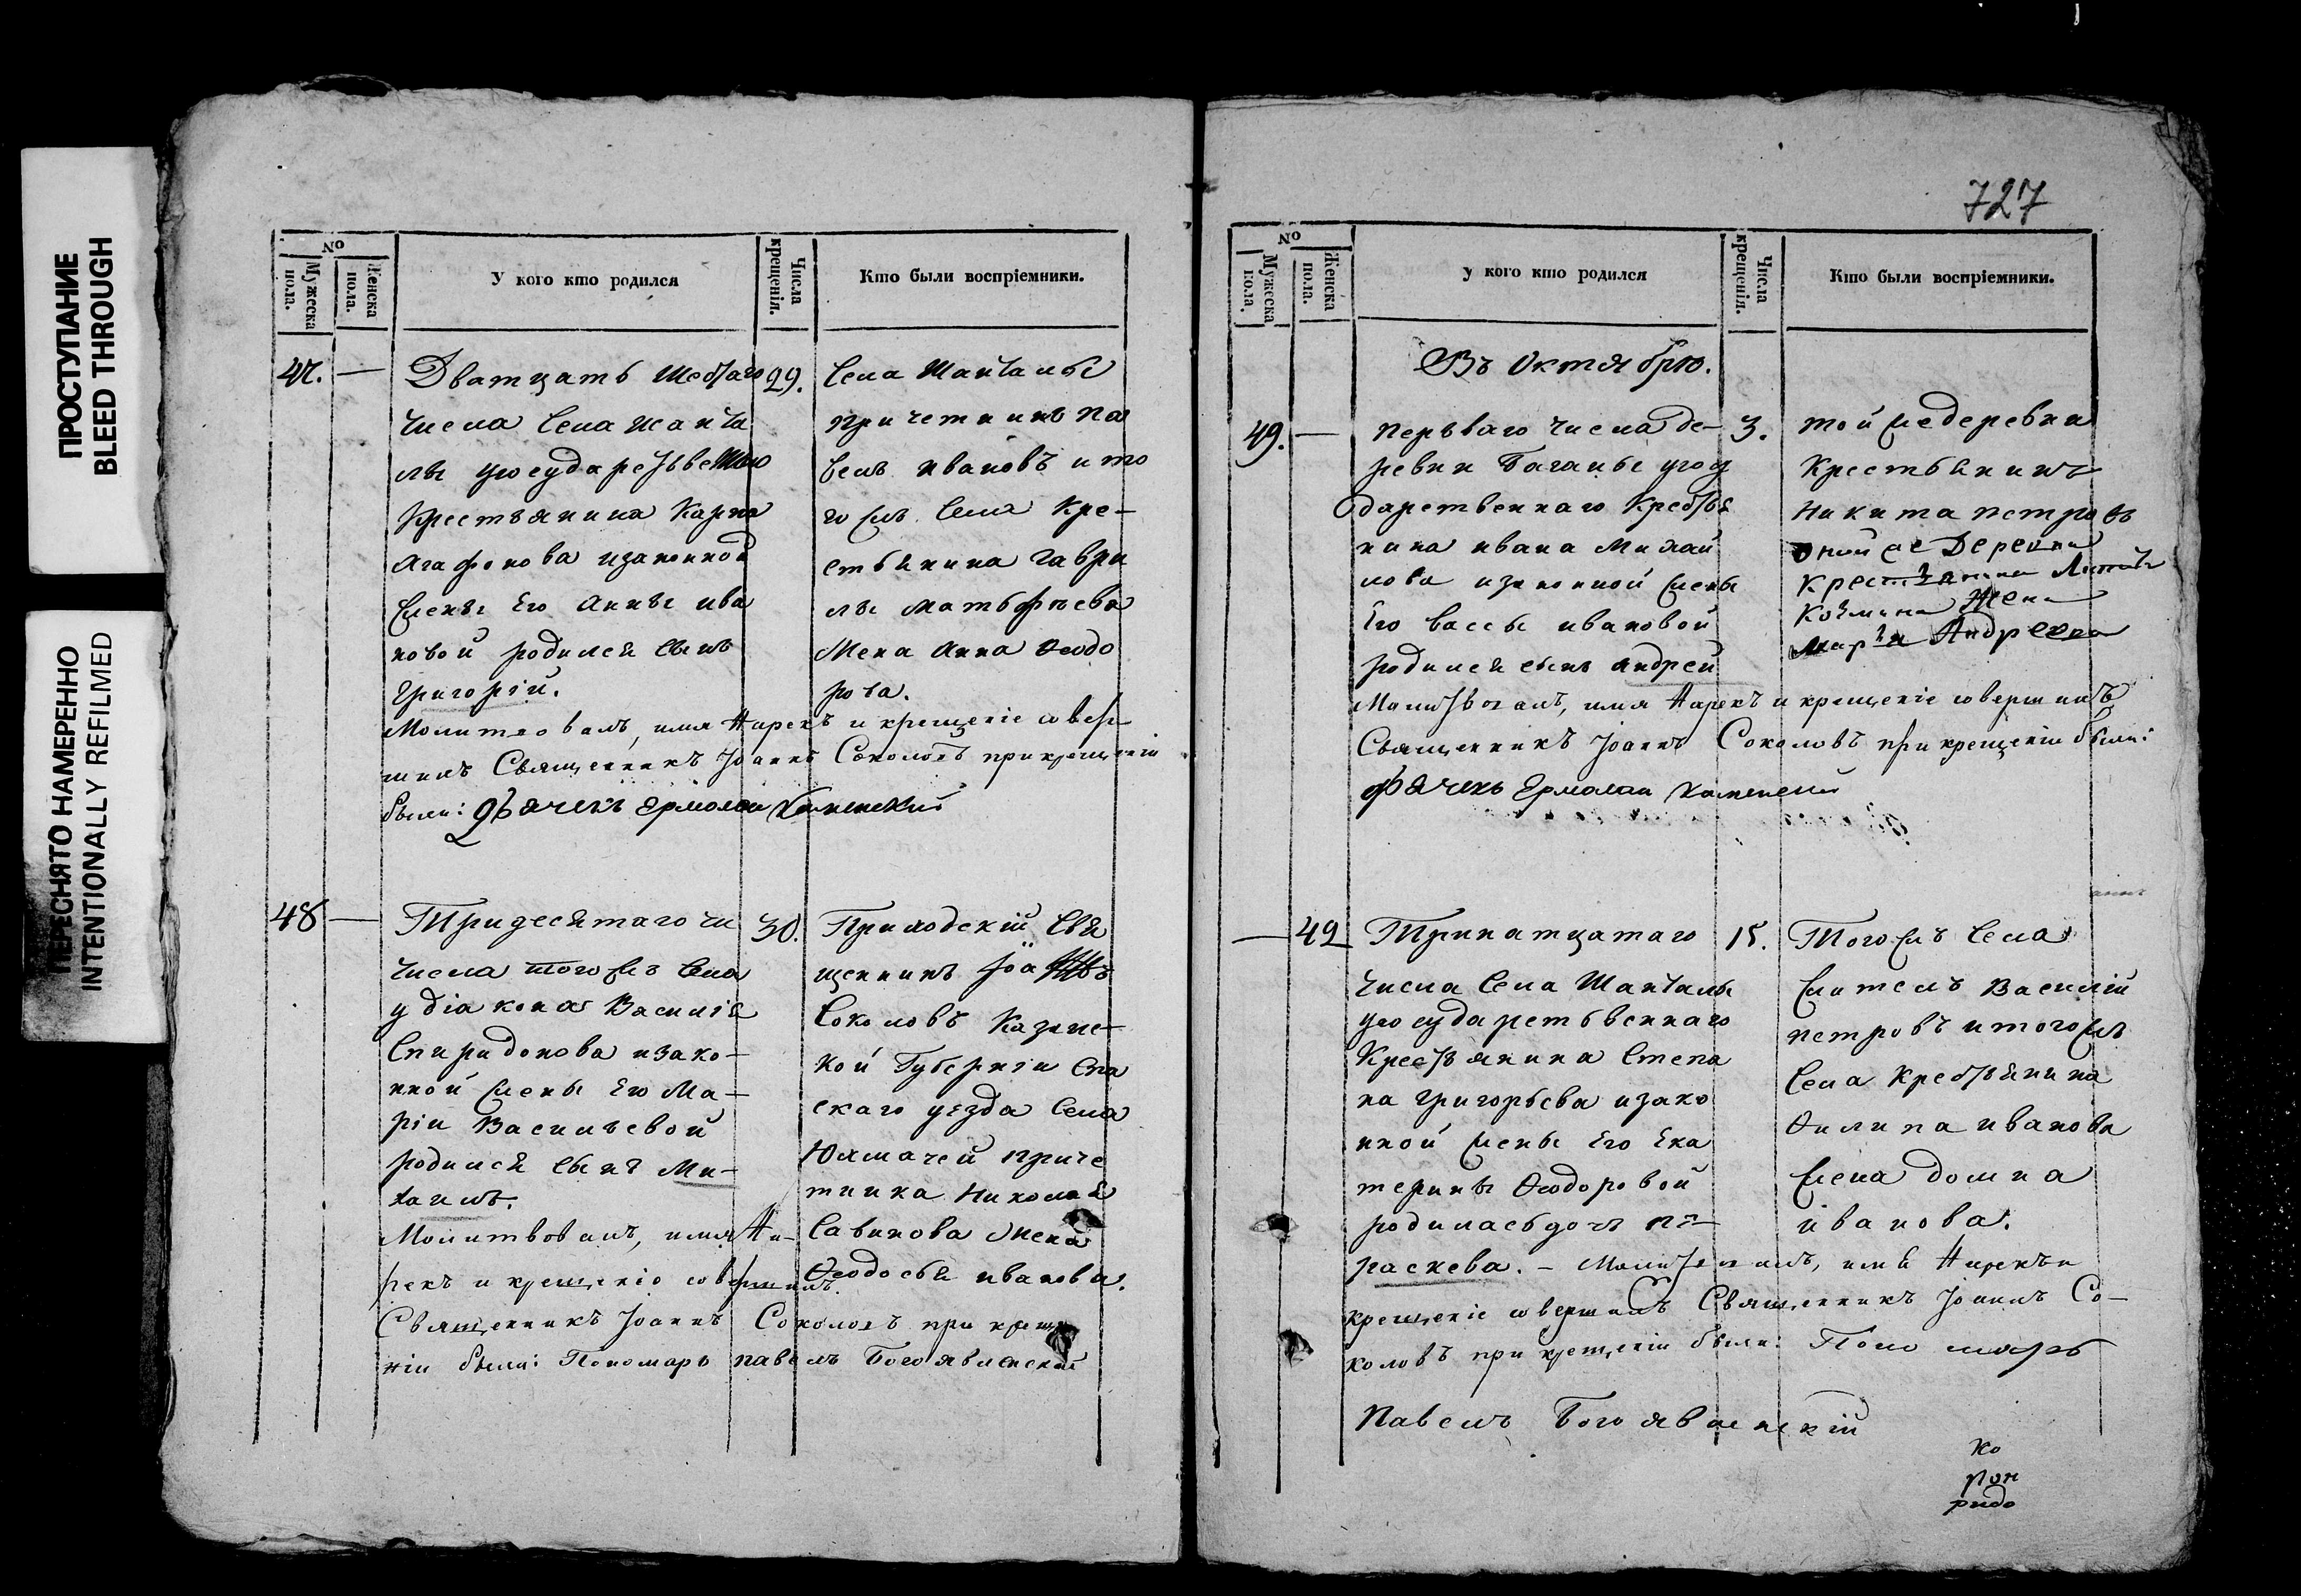 ПРОСТУПАНИЕ
BLEED THROUGH
ПЕРЕСНЯТО НАМЕРЕННО
INTENTIONALLY REFILMED
№
Мужеска пола.
Женска пола.
У кого кто родился
Числа крещенія.
Кто были воспріемники.
47. —
Дватцать шестаго
числа Села Шанта
лы угосударственнаго
Крестьянина Карпа
Агафонова изаконной
жены Его Анны ива
новой родился сынъ
Григорій.
29.
Села Шанталы
причетникъ Па
велъ ивановъ ито
го жъ Села Кре-
стьянина Гаври
лы Матьфѣева
Жена Анна Ѳеодо
рова.
Молитвовалъ, имя Нарекъ и крещеніе совер
шилъ Священникъ Іоаннъ Соколовъ при крещеніи
были: дьячекъ Ермолай Каменскій
48 —
Тридесятаго чи
числа того жъ Села
у діакона Василія
Спиридонова изако-
нной жены Его Ма-
ріи Васильевой
родился сынъ Ми-
хаилъ.
30.
Приходскій Свя
щенникъ Іоаннъ
Соколовъ Казанс-
кой Губерніи Спа
скаго уезда Села
Юхмачей приче
тника Николая
Савинова Жена
Ѳеодосья иванова.
Молитвовалъ, имя На-
рекъ и крещеніе совершилъ.
Священникъ Іоаннъ Соколовъ при креще
ніи были: Пономарь павелъ Богоявленскій
727
№
Мужеска пола.
Женска пола.
У кого кто родился
Числа крещенія.
Кто были воспріемники.
Въ Октябрѣ.
49. —
перьваго числа де-
ревни Баганы угосу
дарственнаго Крестья
нина ивана Михай
лова изаконной жены
Его вассы ивановой
родился сынъ андрей
3.
той же деревни
Крестьянинъ
Никита петровъ
оной же Деревни
Крестьянина
Козмина Жена
Марья Андреева
Молитвовалъ, имя Нарекъ и крещеніе совершилъ
Священникъ Іоаннъ Соколовъ при крещеніи были:
дьячекъ Ермолай Каменскій
— 49
Тринатцатаго
числа Села Шанталы
угосударстьвеннаго
Крестьянина Степа
на Григорьева изако
нной жены Его Ека
терины Ѳеодоровой
родилась дочь па-
раскева. – Молитвовалъ, имя Нарекъ и
15.
Того жъ Села
житель Василій
петровъ итогожъ
Села Крестьянина
Филипа иванова
жена домна
иванова.
крещеніе совершилъ Священникъ Іоаннъ Со-
коловъ при крещеніи были: Пономарь
Павелъ Богоявленскій